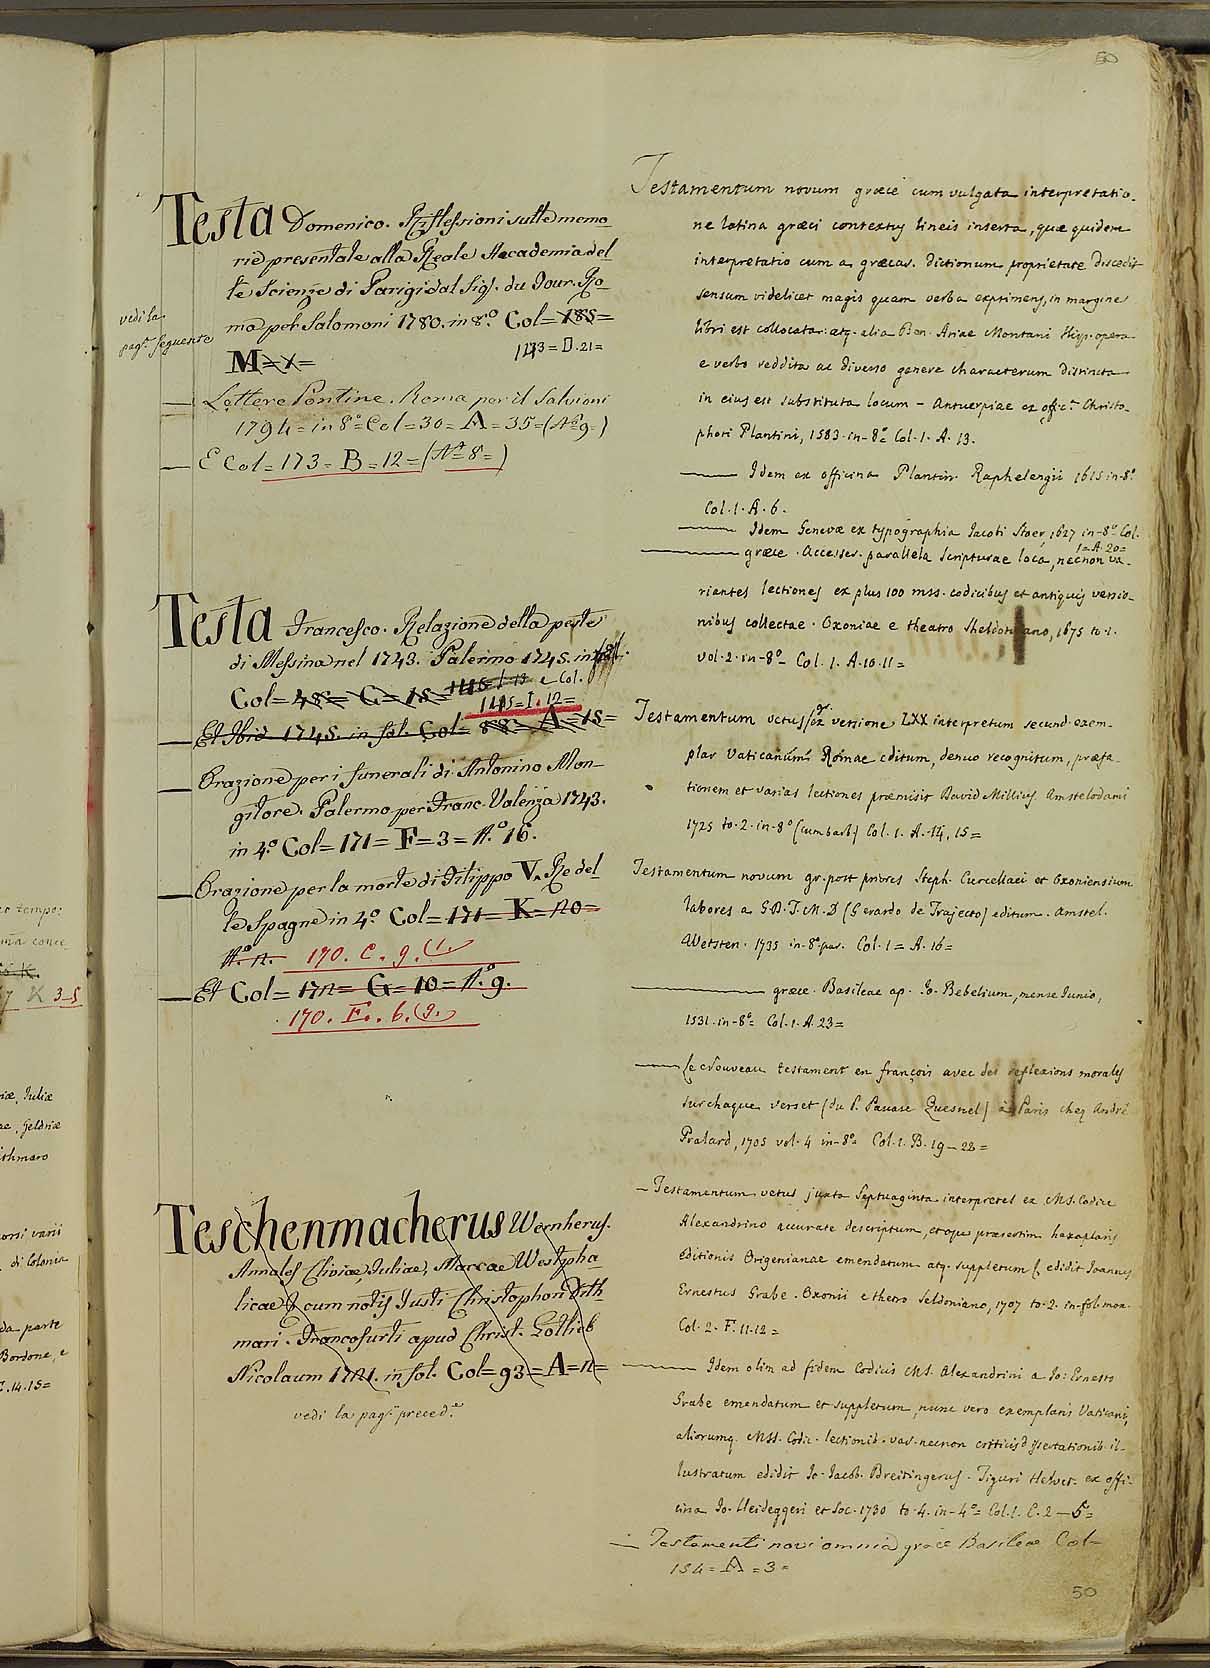 50
Testa Domenico. Riflessioni sulle memo-
rie presentate alla Reale Accademia del-
le Scienze di Parigi dal Sig.r du Tour. Ro-
ma pel Salomoni 1780. in 8.o Col= 185=
M=x= 143=D.21=
vedi la
pag.a seguente
— Lettere Pontine. Roma per il Salvioni
1794= in 8.o= Col=30= A=35=(N.o 9=)
— E Col=173= B=12=(N.o 8=)
Testa Francesco. Relazione della peste
di Messina nel 1743. Palermo 1745. in
Col=48= G=18= 1116=I=13 e Col.
1115=I.12=
— Et Ibid 1745. in fol. Col= 88= A=15=
— Orazione per i funerali di Antonino Mon-
gitore. Palermo per Franc. Valenza 1743.
in 4.o Col=171=F=3=N.o 16.
— Orazione per la morte di Filippo V. Re del-
le Spagne in 4.o Col=171= K=20=
N. 2. 170. C. 9. (1.)
— Et Col=172= G=10=N.o 9.
170. F. 6. (9.)
Teschenmacherus Wernherus.
Annales Cliviae, Juliae, Marcae Westpha-
licae & cum notis Justi Christophori Dith-
mari. Francofurti apud Christ. Gottlieb
Nicolaum 1721. in fol. Col=93=A=2=
vedi la pag.a preced.e
Testamentum novum græcè cum vulgata interpretatio-
ne latina græci contextus lineis inserta, quæ quidem
interpretatio cum a græcar. dictionum proprietate discedit
sensum videlicet magis quam verba exprimens, in margine
libri est collocata: atq. alia Ben. Ariæ Montani Hisp. opera
e verbo reddita ac diverso genere characterum distincta
in eius est substituta locum - Antuerpiae ex offic.a Christo-
phori Plantini, 1583. in-8.o= Col. 1. A. 13.
— Idem ex officina Plantin. Raphelengii 1615 in-8.o
Col. 1. A. 6.
— Idem Genevæ ex typographia Iacobi Stoer, 1627 in-8.o Col.
1=A.20=
— græce. Accesser. parallela Scripturae loca, necnon va-
riantes lectiones ex plus 100 mss. codicibus et antiquis versio-
nibus collectae. Oxoniae e theatro Sheldoniano, 1675 to. 1.
vol. 2. in-8.o= Col. 1. A. 10. 11=
Testamentum vetus ex versione LXX interpretum secund. exem-
plar Vaticanum Romae editum, denuo recognitum, præfa-
tionem et varias lectiones præmisit David Millius Amstelodami
1725 to. 2. in-8.o (cum barb) Col. 1. A. 14, 15=
Testamentum novum gr. post priores Steph. Curcellaei et Oxoniensium
labores a G.D.T.M.D (Gerardo de Trajecto) editum. Amstel.
Wetsten. 1735 in-8.o par. Col. 1= A. 16=
— græce. Basileae ap. Io. Bebelium, mense Iunio,
1531. in-8.o= Col. 1. A. 23=
— Le Nouveau testament en françois avec des reflexions morales
sur chaque verset (du P. Pasase Quesnel) à Paris chez André
Pralard, 1705 vol. 4 in-8.o= Col. 1. B. 19-22=
— Testamentum vetus juxta Septuaginta interpretes ex MS. Codice
Alexandrino accurate descriptum, et ope præsertim hexaplaris
editionis Origenianae emendatum atq. suppletum &. edidit Ioannes
Ernestus Grabe. Oxonii e thetro Seldoniano, 1707 to. 2. in-fol max
Col. 2. F. 11-12=
— Idem olim ad fidem Codicis MS. Alexandrini a Io: Ernesto
Grabe emendatum et suppletum, nunc vero exemplaris Vaticani,
aliorumq. MSS. Codic. lectionib. var. necnon criticis dissertationib. il-
lustratum edidit Io. Iacob. Breitingerus. Tiguri Helvet. ex offi-
cina Io. Heideggeri et Soc. 1730 to. 4. in-4.o= Col. 1. C. 2-5=
— Testamenti novi omnia græce Basileae Col=
154=A=3=
50